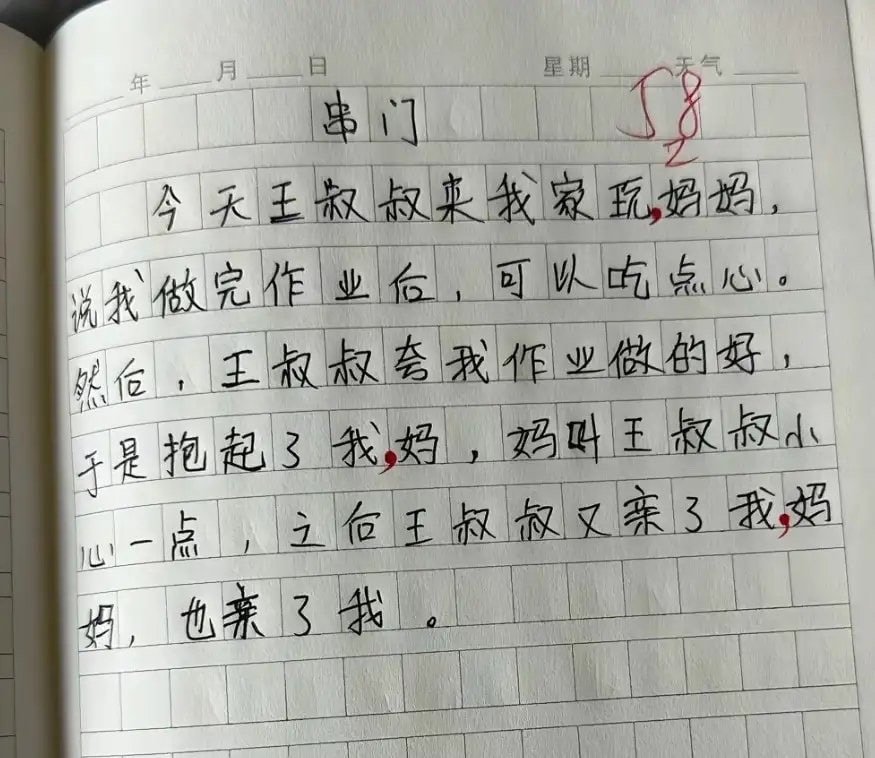 年 月 日 星期 天气
串门
今天王叔叔来我家玩,妈妈,
说我做完作业后,可以吃点心。
然后,王叔叔夸我作业做的好,
于是抱起了我,妈,妈叫王叔叔小
心一点,之后王叔叔又亲了我,妈
妈,也亲了我。